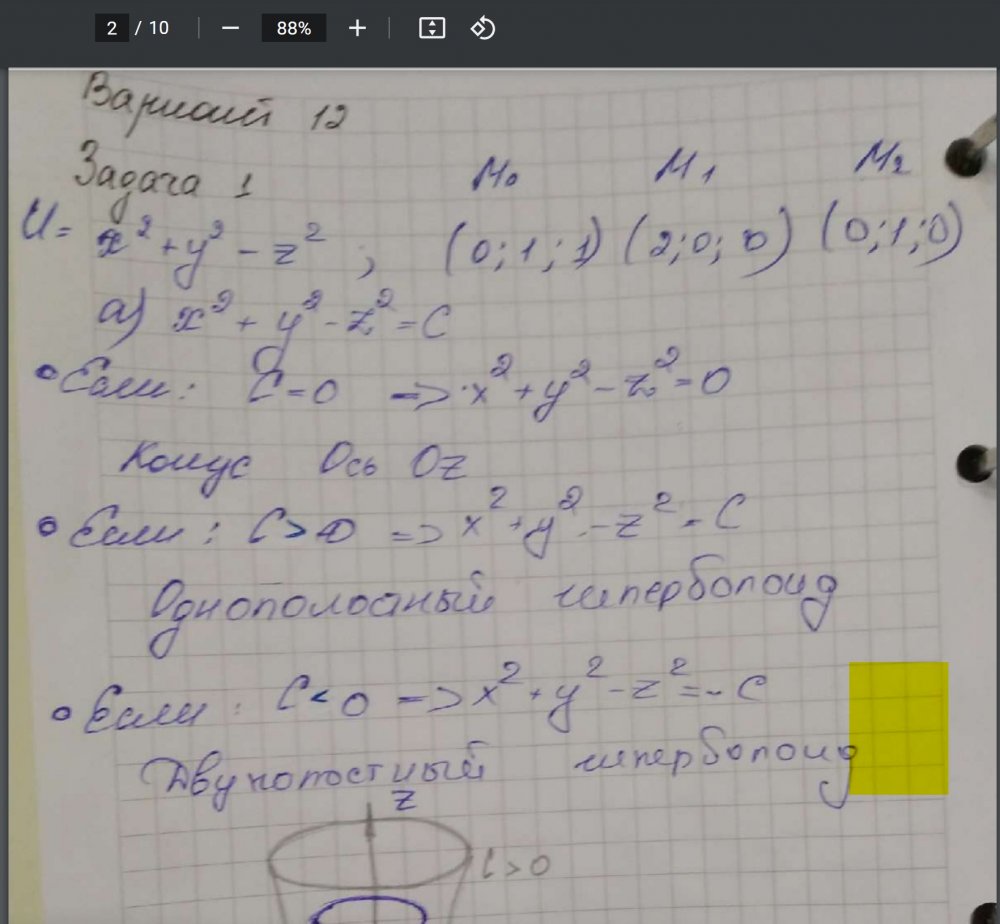 2 / 10 — 88% +
Вариант 12
Задача 1 M₀ M₁ M₂
U = x² + y² - z² ; (0; 1; 1) (2; 0; 0) (0; 1; 0)
а) x² + y² - z² = C
• Если: C = 0 => x² + y² - z² = 0
Конус Ось Oz
• Если: C > 0 => x² + y² - z² = C
Однополосный гипербологоид
• Если: C < 0 => x² + y² - z² = - C
Двухполостный гиперболоид
z
C > 0